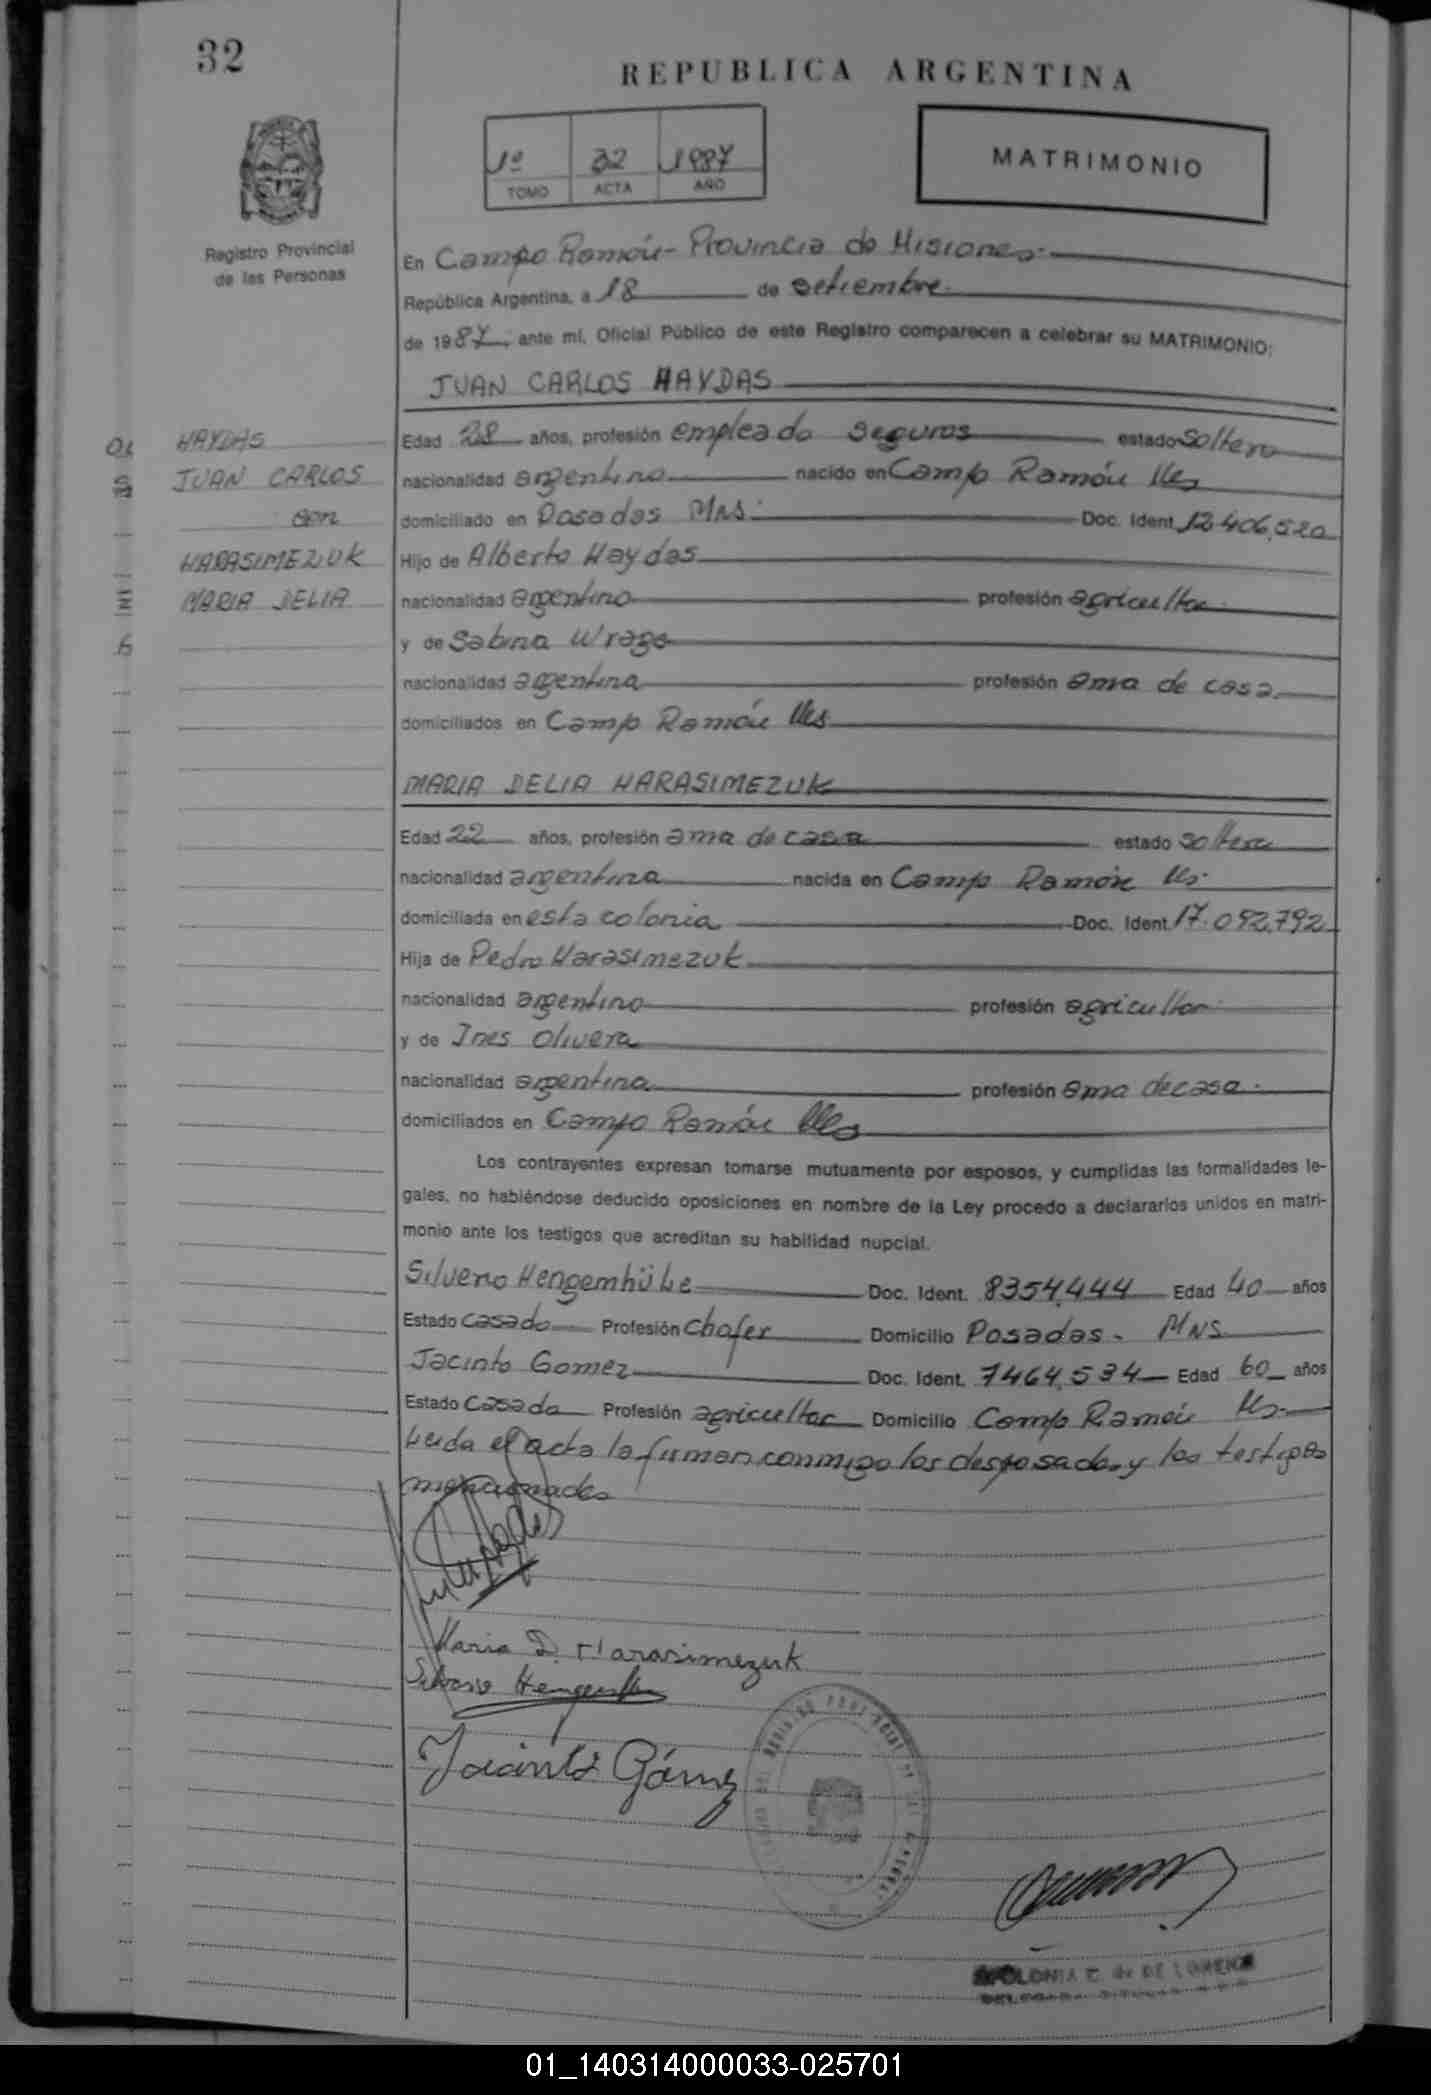 32
REPUBLICA ARGENTINA
1º 32 1987
TOMO ACTA AÑO
MATRIMONIO
Registro Provincial
de las Personas
En Campo Ramón - Provincia de Misiones.
República Argentina, a 18 de setiembre.
de 1987, ante mí, Oficial Público de este Registro comparecen a celebrar su MATRIMONIO:
JUAN CARLOS HAYDAS
HAYDAS
JUAN CARLOS
con
HARASIMEZUK
MARIA DELIA
Edad 28 años, profesión empleado seguros estado soltero
nacionalidad argentino nacido en Campo Ramón Mes
domiciliado en Posadas Mns. Doc. Ident. 12.406.520
Hijo de Alberto Haydas
nacionalidad argentino profesión agricultor.
y de Sabina
nacionalidad argentina profesión ama de casa.
domiciliados en Campo Ramón Mes
MARIA DELIA HARASIMEZUK
Edad 22 años, profesión ama de casa estado soltera
nacionalidad argentina nacida en Campo Ramón Ms.
domiciliada en esta colonia Doc. Ident. 17.092.792
Hija de Pedro Harasimezuk
nacionalidad argentino profesión agricultor.
y de Ines Olivera
nacionalidad argentina profesión ama de casa.
domiciliados en Campo Ramón Mes
Los contrayentes expresan tomarse mutuamente por esposos, y cumplidas las formalidades le-
gales, no habiéndose deducido oposiciones en nombre de la Ley procedo a declararlos unidos en matri-
monio ante los testigos que acreditan su habilidad nupcial.
Silverio Hengemhüle Doc. Ident. 8354.444 Edad 40 años
Estado casado Profesión chofer Domicilio Posadas - Mns.
Jacinto Gomez Doc. Ident. 7464.534 Edad 60 años
Estado casado Profesión agricultor Domicilio Campo Ramón Ms.
Leida el acta la firman conmigo los desposados y los testigos
mencionados
Maria D. Harasimezuk
Silverio
Jacinto Gómez
01_140314000033-025701